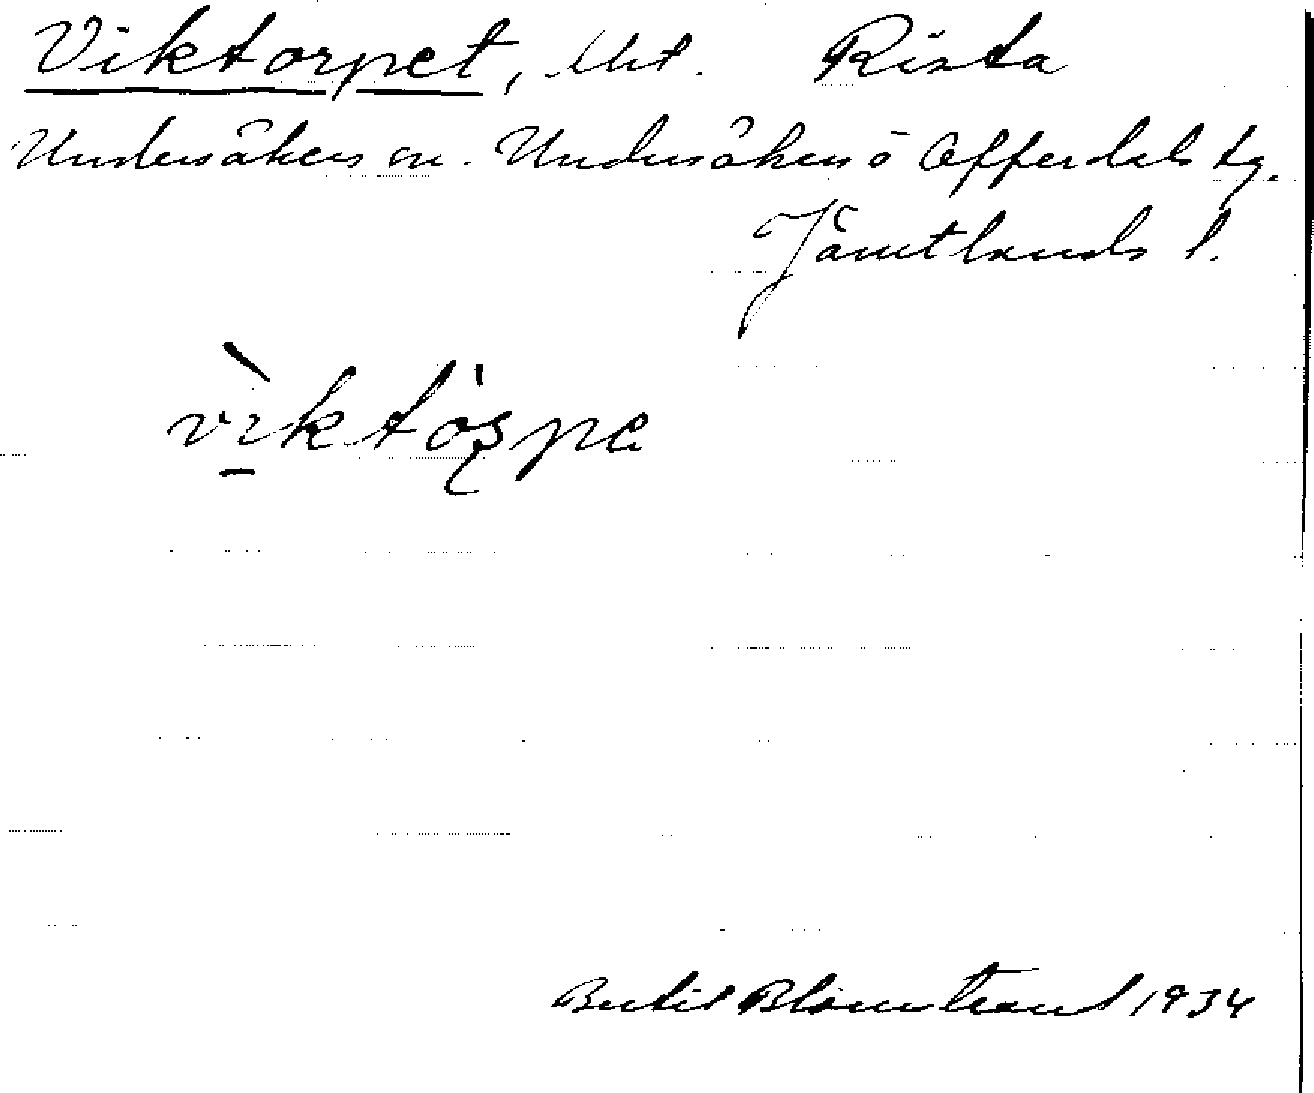 Viktorpet, Utt. Rista
Undersåkers sn. Undersåkers o Offerdals tg.
Jämtlands l.
vìktòspe
Bertil Blomstrand 1934